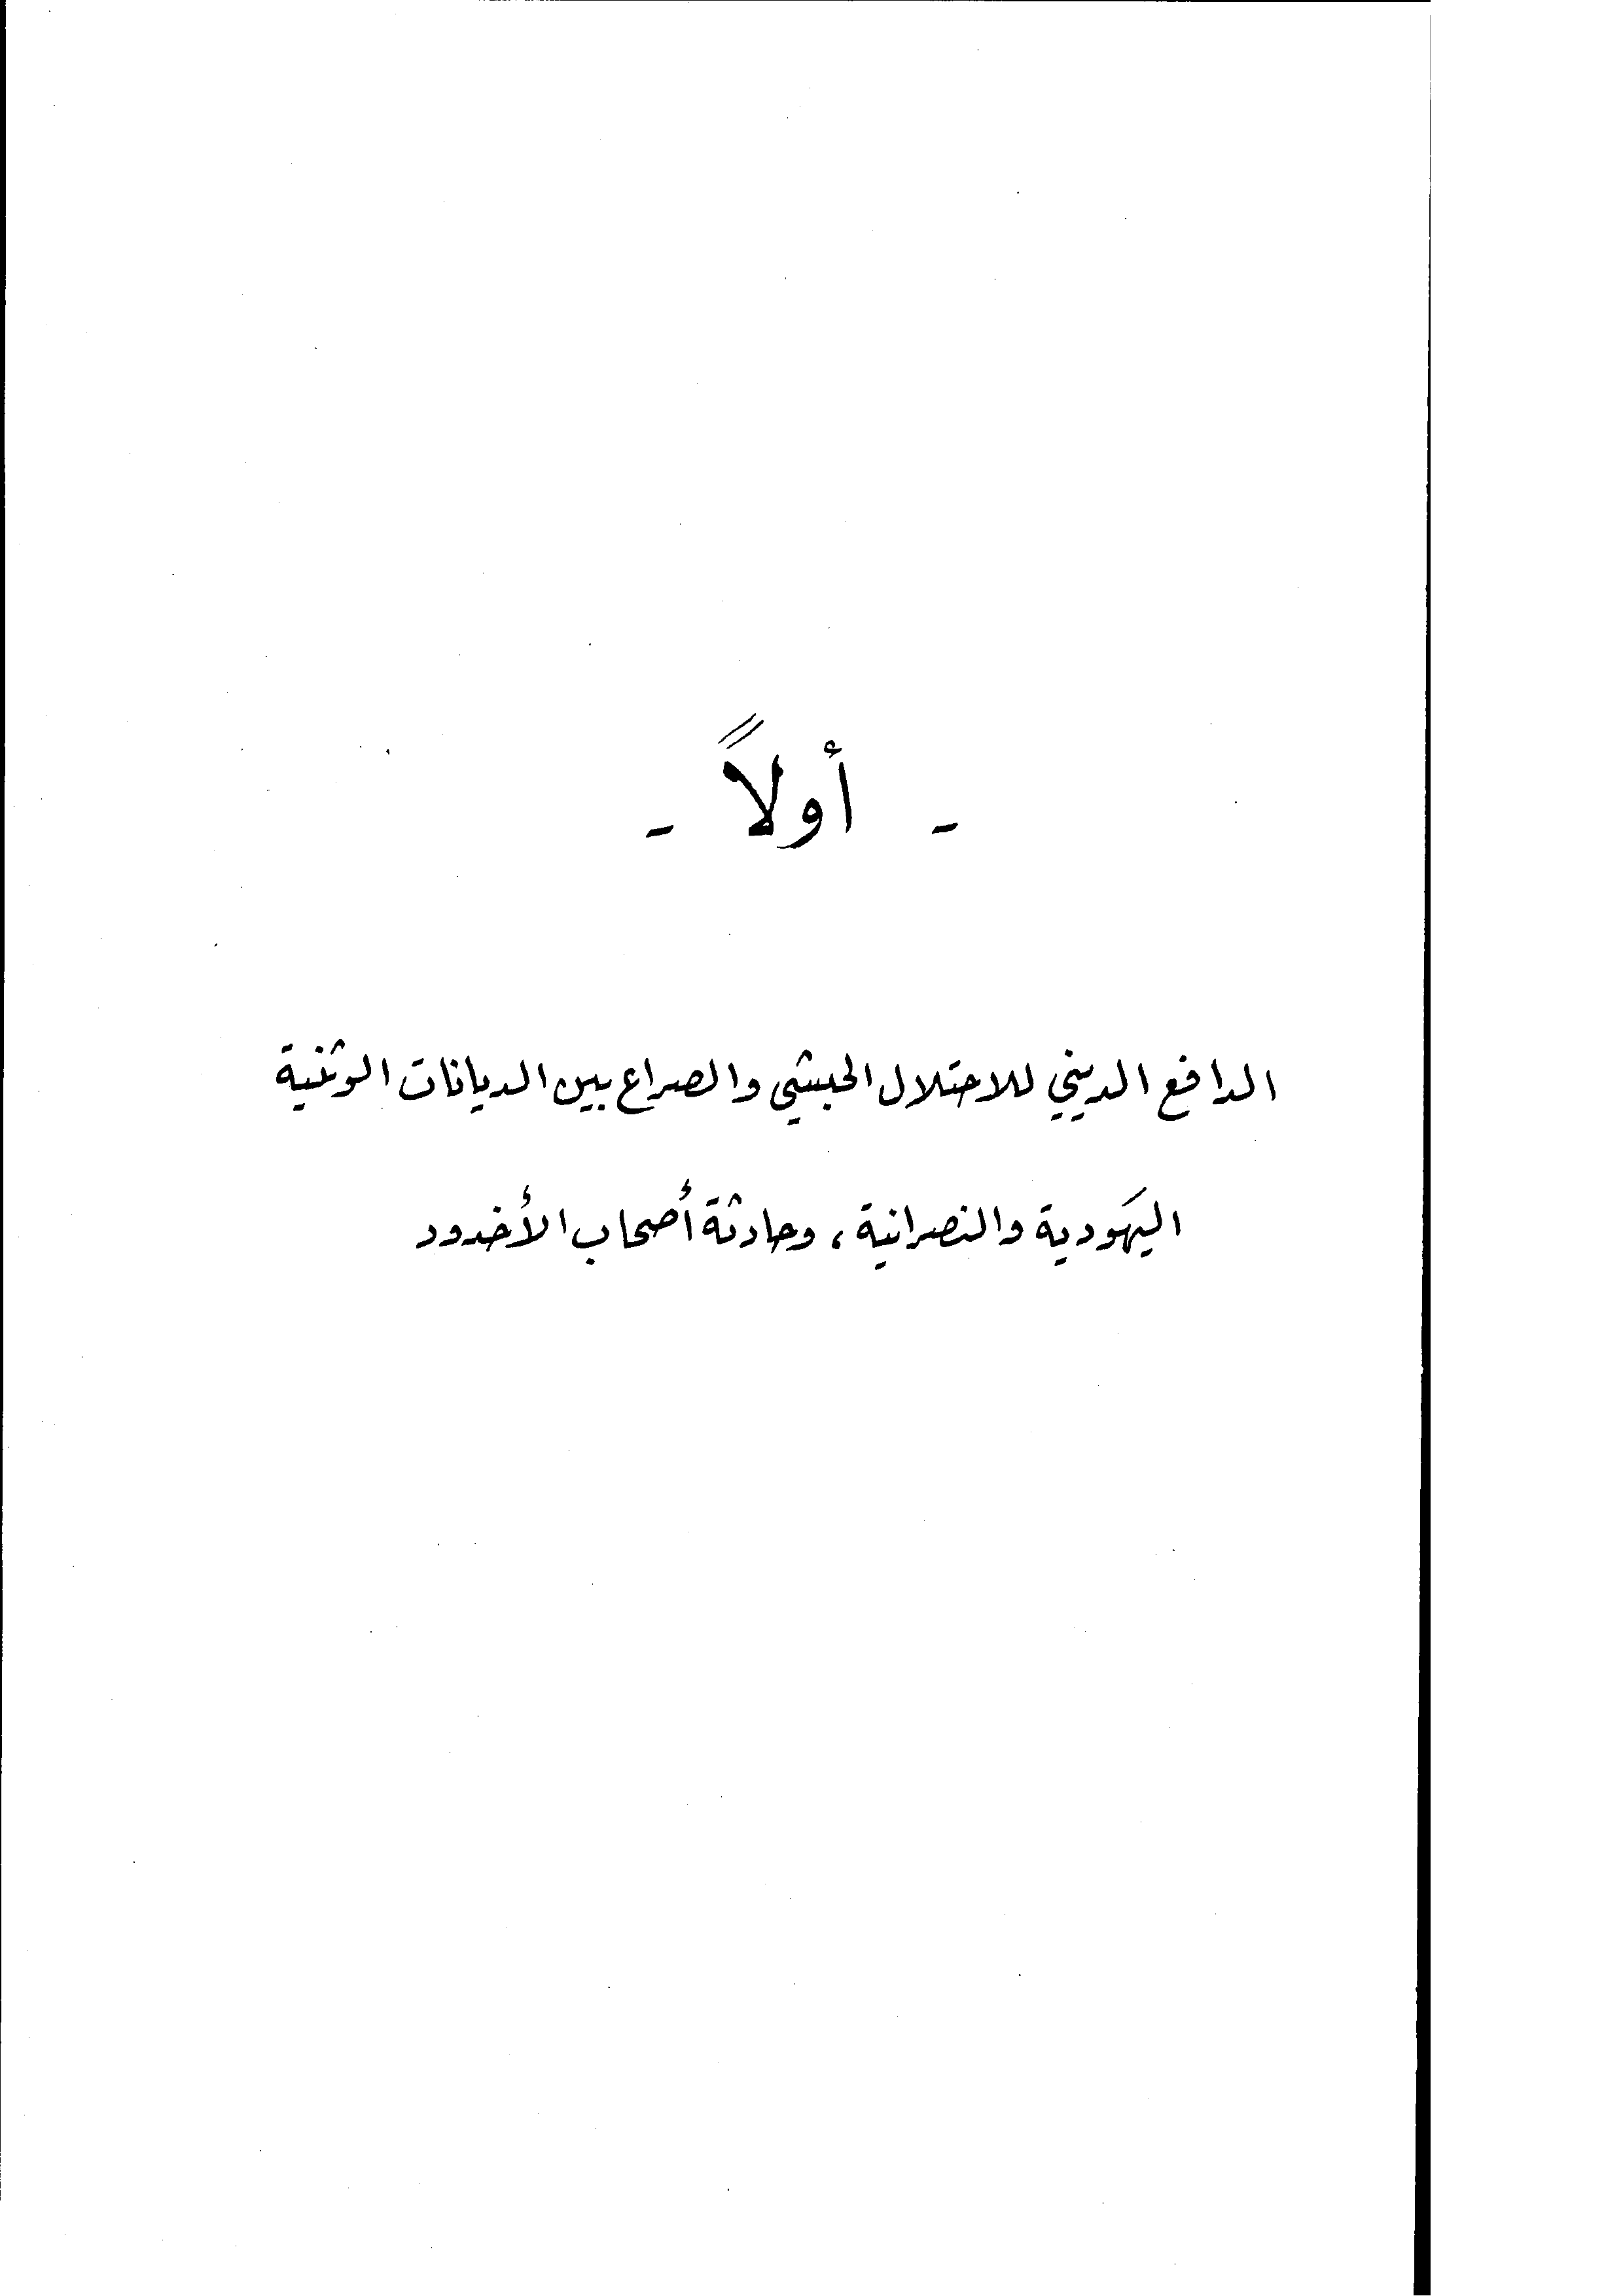 - أولاً -
الدافع الديني للاحتلال الحبشي والصراع بين الديانات الوثنية
اليهودية والنصرانية، وحادثة أصحاب الأخدود